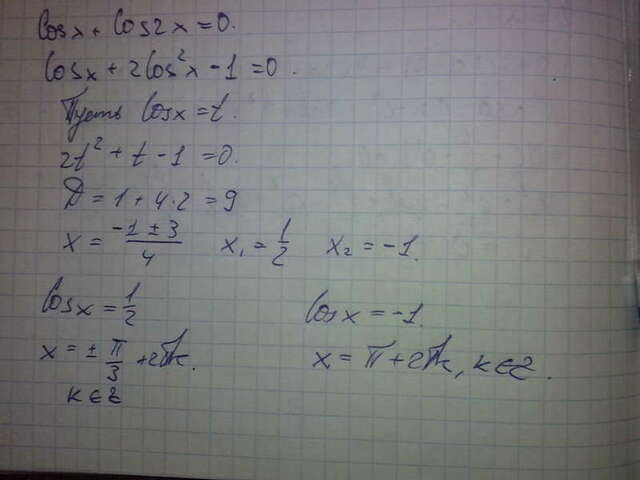 cosx + cos2x = 0.
cosx + 2cos²x - 1 = 0.
Пусть cosx = t.
2t² + t - 1 = 0.
D = 1 + 4·2 = 9
x = (-1 ± 3)/4 x₁ = 1/2 x₂ = -1.
cosx = 1/2 cosx = -1.
x = ± π/3 + 2πk. x = π + 2πk, k∈z.
k∈z